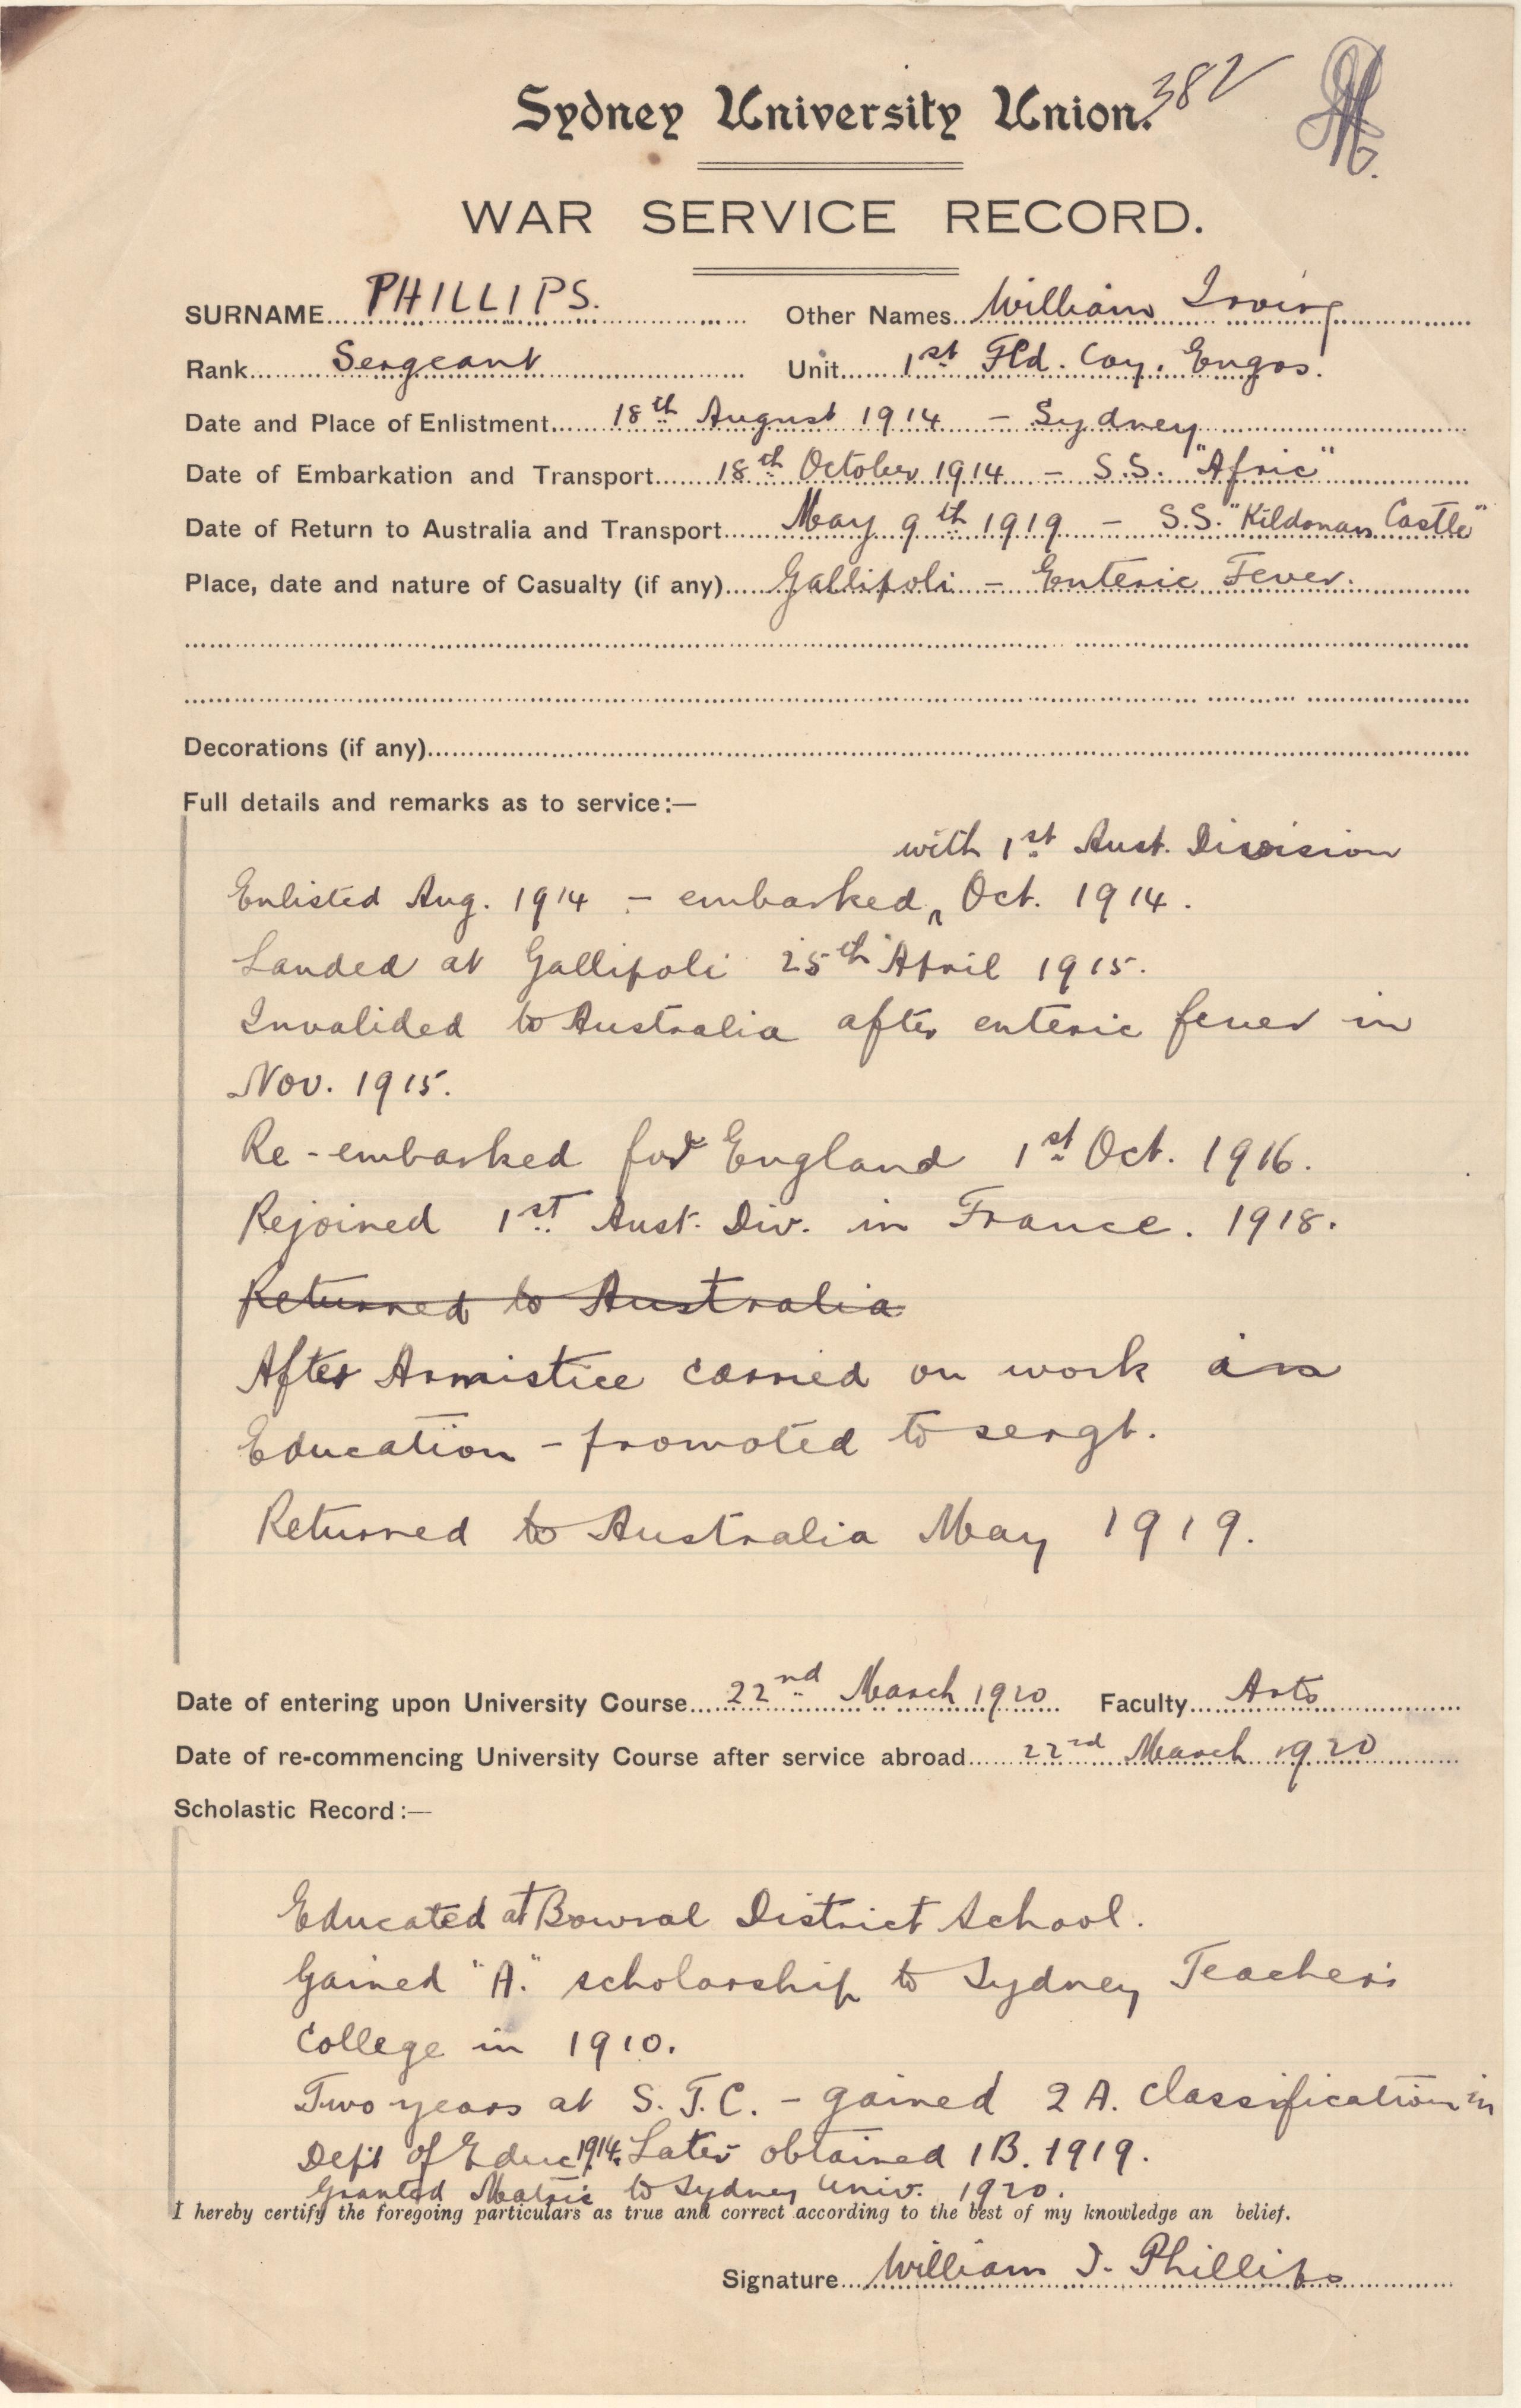 Sydney University Union. 382
WAR SERVICE RECORD.
SURNAME PHILLIPS. Other Names William Irving
Rank Sergeant Unit 1st Fld. Coy. Engrs.
Date and Place of Enlistment 18th August 1914 - Sydney
Date of Embarkation and Transport 18th October 1914 - S.S. "Afric"
Date of Return to Australia and Transport May 9th 1919 - S.S. "Kildonan Castle"
Place, date and nature of Casualty (if any) Gallipoli - Enteric Fever.
Decorations (if any)
Full details and remarks as to service:—
with 1st Aust. Division
Enlisted Aug. 1914 - embarked ^ Oct. 1914.
Landed at Gallipoli 25th April 1915.
Invalided to Australia after enteric fever in
Nov. 1915.
Re-embarked for England 1st Oct. 1916.
Rejoined 1st Aust. Div. in France. 1918.
Returned to Australia
After Armistice carried on work in
Education - promoted to sergt.
Returned to Australia May 1919.
Date of entering upon University Course 22nd March 1920 Faculty Arts
Date of re-commencing University Course after service abroad 22nd March 1920
Scholastic Record:—
Educated at Bowral District School.
Gained "A." scholarship to Sydney Teachers
College in 1910.
Two years at S.T.C. - gained 2A. classification in
Dept of Educ. 1914. Later obtained 1B. 1919.
Granted Matric to Sydney Univ. 1920.
I hereby certify the foregoing particulars as true and correct according to the best of my knowledge an belief.
Signature William I. Phillips